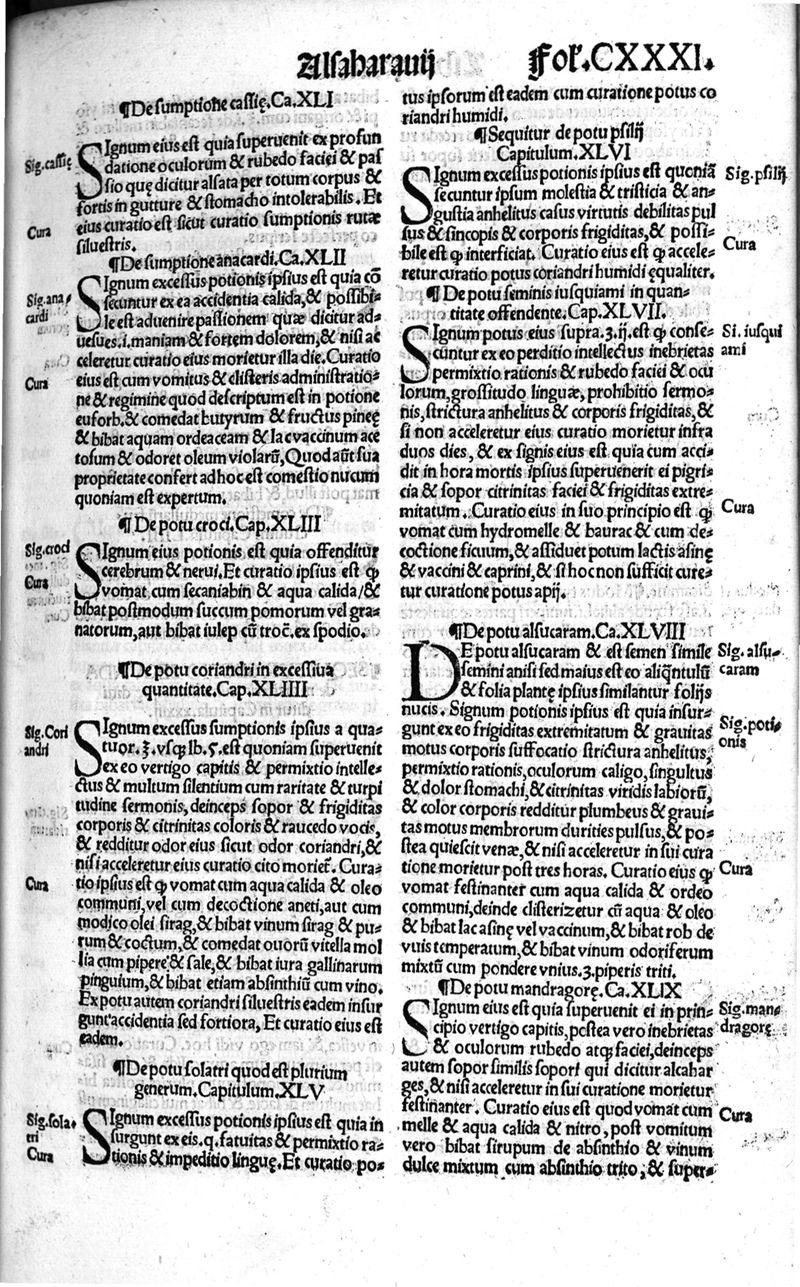 Alsaharauij Fol. CXXXI.
¶De sumptione cassię. Ca. XLI
Sig. cassię
SIgnum eius est quia superuenit ex profun
datione oculorum & rubedo faciei & pas
sio quę dicitur alsata per totum corpus &
fortis in gutture & stomacho intolerabilis. Et
Cura
eius curatio est sicut curatio sumptionis rutæ
siluestris.
¶De sumptione anacardi. Ca. XLII
Sig. ana-
cardi
SIgnum excessus potionis ipsius est quia cō
secuntur ex ea accidentia calida, & possibi-
le est aduenire passionem quæ dicitur ad-
uesues. i. maniam & fortem dolorem, & nisi ac
celeretur curatio eius morietur illa die. Curatio
Cura
eius est cum vomitus & clisteris administratio-
ne & regimine quod descriptum est in potione
euforb. & comedat butyrum & fructus pineę
& bibat aquam ordeaceam & lac vaccinum ace
tosum & odoret oleum violarū, Quod aūt sua
proprietate confert ad hoc est comestio nucum
quoniam est expertum.
¶De potu croci. Cap. XLIII
Sig. croci
SIgnum eius potionis est quia offenditur
Cura
cerebrum & nerui. Et curatio ipsius est ꝙ
vomat cum secaniabin & aqua calida/ &
bibat postmodum succum pomorum vel gra-
natorum, aut bibat iulep cū troc. ex spodio.
¶De potu coriandri in excessiua
quantitate. Cap. XLIIII
Sig. Cori
andri
SIgnum excessus sumptionis ipsius a qua-
tuor. ℥. vsq; lb. ϛ. est quoniam superuenit
ex eo vertigo capitis & permixtio intelle-
ctus & multum silentium cum raritate & turpi
tudine sermonis, deinceps sopor & frigiditas
corporis & citrinitas coloris & raucedo vocis,
& redditur odor eius sicut odor coriandri, &
nisi acceleretur eius curatio cito morieť. Cura-
Cura
tio ipsius est ꝙ vomat cum aqua calida & oleo
communi, vel cum decoctione aneti, aut cum
modico olei sirag, & bibat vinum sirag & pu-
rum & coctum, & comedat ouorū vitella mol
lia cum pipere & sale, & bibat iura gallinarum
pinguium, & bibat etiam absinthiū cum vino.
Ex potu autem coriandri siluestris eadem insur
gunt accidentia sed fortiora, Et curatio eius est
eadem.
¶De potu solatri quod est plurium
generum. Capitulum. XLV
Sig. sola-
tri
SIgnum excessus potionis ipsius est quia in
surgunt ex eis. q. fatuitas & permixtio ra-
Cura
tionis & impeditio linguę. Et curatio po-
tus ipsorum est eadem cum curatione potus co
riandri humidi.
¶Sequitur de potu psilij
Capitulum. XLVI
Sig. psilij
SIgnum excessus potionis ipsius est quoniā
secuntur ipsum molestia & tristicia & an-
gustia anhelitus casus virtutis debilitas pul
sus & sincopis & corporis frigiditas, & possi-
Cura
bile est ꝙ interficiat. Curatio eius est ꝙ accele-
retur curatio potus coriandri humidi ęqualiter.
¶De potu seminis iusquiami in quan-
titate offendente. Cap. XLVII.
Si. iusqui
ami
SIgnum potus eius supra. ʒ. ij. est ꝙ conse-
cuntur ex eo perditio intellectus inebrietas
permixtio rationis & rubedo faciei & ocu
lorum, grossitudo linguæ, prohibitio sermo-
nis, strictura anhelitus & corporis frigiditas, &
si non acceleretur eius curatio morietur infra
duos dies, & ex signis eius est quia cum acci-
dit in hora mortis ipsius superuenerit ei pigri-
cia & sopor citrinitas faciei & frigiditas extre-
Cura
mitatum. Curatio eius in suo principio est ꝙ
vomat cum hydromelle & baurac & cum de-
coctione ficuum, & assiduet potum lactis asinę
& vaccini & caprini, & si hoc non sufficit cure-
tur curatione potus apij.
¶De potu alsucaram. Ca. XLVIII
Sig. alsu-
caram
DE potu alsucaram & est semen simile
semini anisi sed maius est eo aliq̄ntulū
& folia plantę ipsius similantur folijs
nucis. Signum potionis ipsius est quia insur-
Sig. poti-
onis
gunt ex eo frigiditas extremitatum & grauitas
motus corporis suffocatio strictura anhelitus,
permixtio rationis, oculorum caligo, singultus
& dolor stomachi, & citrinitas viridis labiorū,
& color corporis redditur plumbeus & graui-
tas motus membrorum durities pulsus, & po-
stea quiescit venæ, & nisi acceleretur in sui cura
Cura
tione morietur post tres horas. Curatio eius ꝙ
vomat festinanter cum aqua calida & ordeo
communi, deinde clisterizetur cū aqua & oleo
& bibat lac asinę vel vaccinum, & bibat rob de
vuis temperatum, & bibat vinum odoriferum
mixtū cum pondere vnius. ʒ. piperis triti.
¶De potu mandragorę. Ca. XLIX
Sig. man-
dragorę
SIgnum eius est quia superuenit ei in prin-
cipio vertigo capitis, postea vero inebrietas
& oculorum rubedo atq; faciei, deinceps
autem sopor similis sopori qui dicitur alcahar
ges, & nisi acceleretur in sui curatione morietur
Cura
festinanter. Curatio eius est quod vomat cum
melle & aqua calida & nitro, post vomitum
vero bibat sirupum de absinthio & vinum
dulce mixtum cum absinthio trito, & super-